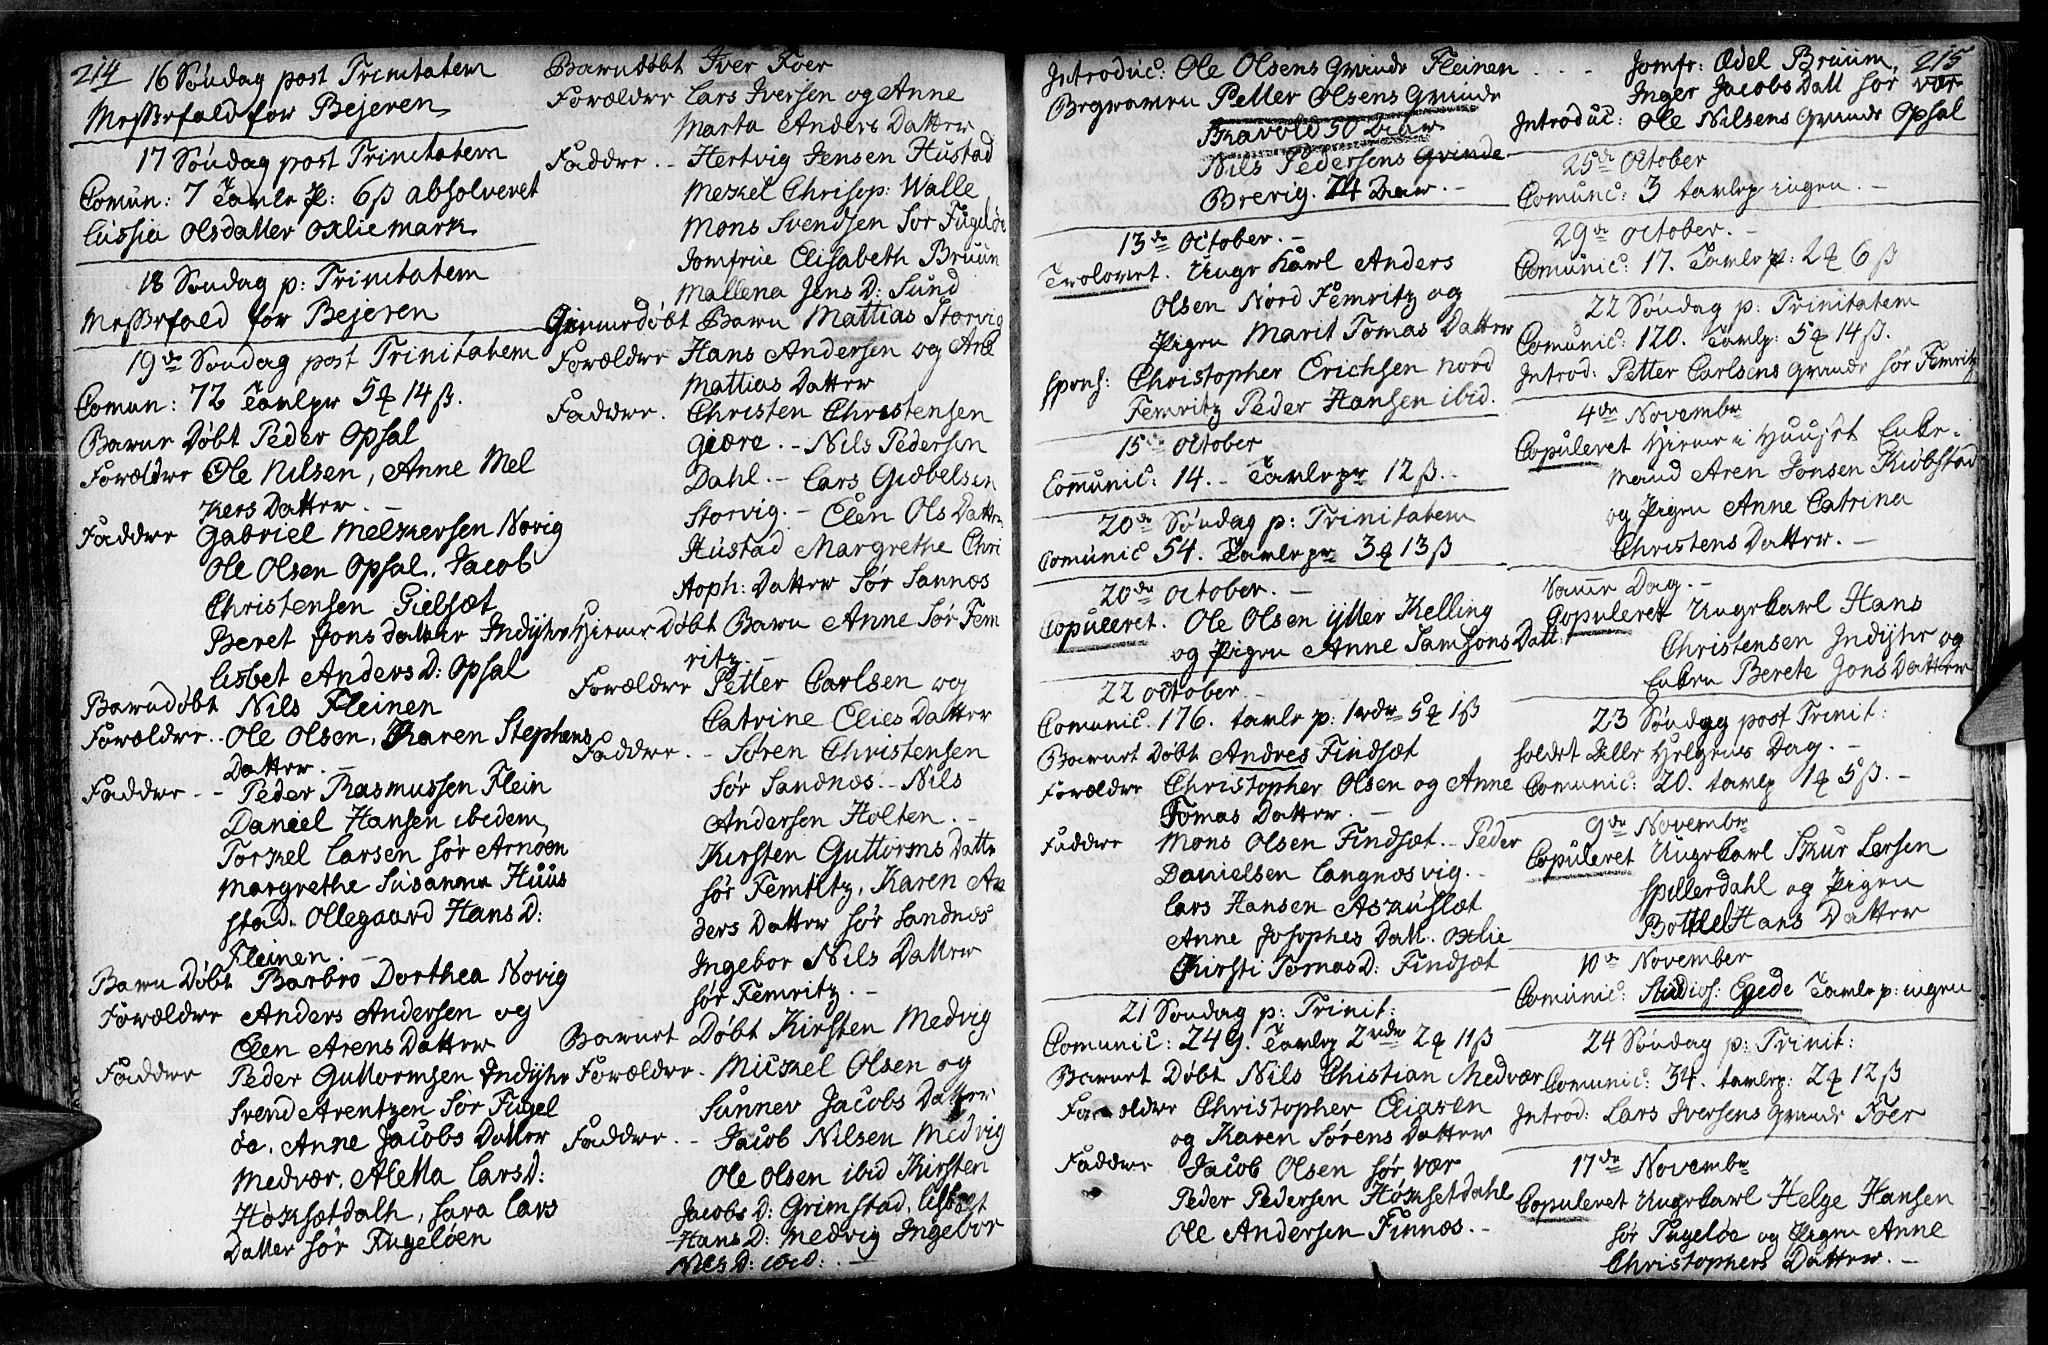 214 16 Söndag post Trinitatem
Messefald for Bejeren
17 Söndag post Trinitatem
Comun: 7 Tavle p: 6ß absolveret
Cissia Olsdatter Oxliemark
18 Søndag p: Trinitatem
Messefald for Bejeren
19de Søndag post Trinitatem
Comun: 72 Tavlepe 5 14ß.
Barne Døbt Peder Opsal
Forældre Ole Nilsen, Anne Mel
kers Datter. –
Faddre Gabriel Melkersen Novig
Ole Olsen Opsal, Jacob
Christensen Gielsæt
Beret Jons datter Indijhr
Lisbet Anders D: Opsal
Barn døbt Nils Fleinen
Forældre. Ole Olsen, Karen Stephens
Datter. –
Faddre – Peder Rasmussen Flein
Daniel Hansen ibidem,
Torkel Larsen sør Arnøen
Margrethe Susanna Huus
stad. Ollegaard Hans D:
Fleinen. –
Barn Døbt Barbro Dorthea Novig
Forældre Anders Andersen og
Elen Arens Datter
Faddre Peder Guttormsen Indijhr
Svend Arentzen Sør Fugel
øe. Anne Jacobs Datter
Medvær, Aletta Lars D:
Høksætdalh, Sara Lars
Datter Sør Fugeløen
Barn døbt Iver Føer
Forældre Lars Iversen og Anne
Marta Anders Datter
Faddre. – Hertvig Jensen Hustad
Mekel Chrisop: Walle
Mons Svendsen Sør Fugelø
Jomfrue Elisabeth Bruun
Mallena Jens D: Sund
Hiemedøbt Barn Mattias Storvig
Forældre Hans Andersen og Ane
Mattias Datter
Faddre. Christen Christensen
Giære. – Nils Pedersen
Dahl. – Lars Giøbelsen
Storvig. – Elen Ols Datter
Hustad Margrethe Chri
stoph: Datter Sør Sannøs
Hieme Døbt Barn Anne Sør Fem
ritz. –
Forældre Petter Carlsen og
Catrine Elies Datter
Faddre. – Søren Christensen
Sør Sandnæs. – Nils
Andersen Holten. –
Kirsten Guttorms Datte
Sør Femritz, Karen An
ders Datter Sør Sandnæs
Ingebor Nils Datter
Sør Femritz. –
Barnet Døbt Kirsten Medvig
Forældre. Mickel Olsen og
Sunnev Jacobs Datter
Faddre. – Jacob Nilsen Medvig
Ole Olsen ibid Kirsten
Jacobs D: Grimstad, Lisbet
Hans D: Medvig Ingebor
Nils D: ibid: –
Introduc: Ole Olsens Qvinde Fleinen
Begraven Petter Olsens Qvinde
Bravold 50
Nils Pedersens Qvinde
Brevig. 74 –
13de October. –
Trolovet. Ungekarl Anders
Olsen Nord Femritz og
Pigen Marit Tomas Datter
Spons: Christopher Erichsen Nord
Femritz Peder Hansen ibid.
15de October
Comunic: 14. – Tavle pe 12ß. –
20de Søndag p: Trinitatem
Comunic 54. Tavle pe 3 13ß
20de October. –
Copuleret. Ole Olsen ijtter Kelling
og Pigen Anne Samsons Datt:
22 October. –
Comunic. 176. tavle p: 1rdr 5 1ß
Barnet Døbt Andres Findsæt
Forældre Christopher Olsen og Anne
Tomas Datter. –
Faddre Mons Olsen Findsæt. – Peder
Danielsen Langnæsvig. –
Lars Hansen Askusæt
Anne Josophes Datt. Oxlie
Kirsti Tomas D: Findsæt
21 Søndag p: Trinit:
Comunic: 249. Tavlep 2rdr 2 11ß
Barnet Døbt Nils Chistian Medvær
Forældre Christopher Eliasen
og Karen Sørens Datter
Faddre Jacob Olsen Sør Vær
Peder Pedersen Høksetdahl
Ole Andersen Finnæs. –
Jomfr: Ædel Bruun, 215
Inger Jacobs Datt Sør Vær
Introduc: Ole Nilsens Qvinde Opsal
25de October
Comunic: 3 tavlep ingen. –
29de October. –
Comunic: 17. Tavle p: 2 6ß
22 Søndag p: Trinitatem
Comunic: 120. Tavlep: 5 14ß.
Introd: Petter Carlsens Qvinde Sør Femritz
4de Novembr
Copuleret Hieme i Huuset Enke-
mand Aren Jonsen Kiøbstad
og Pigen Anne Catrina
Christens Datter. –
Samme Dag. –
Copuleret Ungekarl Hans
Christensen Indijhr og
Enken Berete Jons Datter
23 Søndag post Trinit:
holdet Aller Helgens Dag. –
Comunic: 20. tavlep 1 5ß. –
9de Novembr
Copuleret Ungekarl Skur Lersen
Spillerdahl og Pigen
Bottel Hans Datter
10de November
Comunic: Studios: Egede Tavle p: ingen
24 Søndag p: Trinit:
Comunic: 34. tavlep: 2 12ß
Introd: Lars Iversens Qvinde Føer
17de Novembr
Copuleret Ungekarl Helge Hansen
Sør Fugeløe og Pigen Anne
Christophers Datter. –